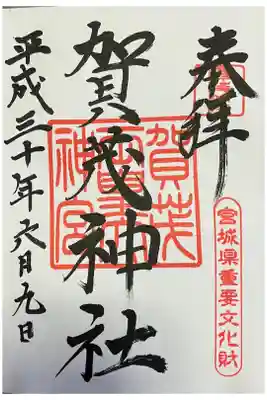 奉拝
宮城県重要文化財
賀茂
神宮
賀茂神社
平成三十年六月九日